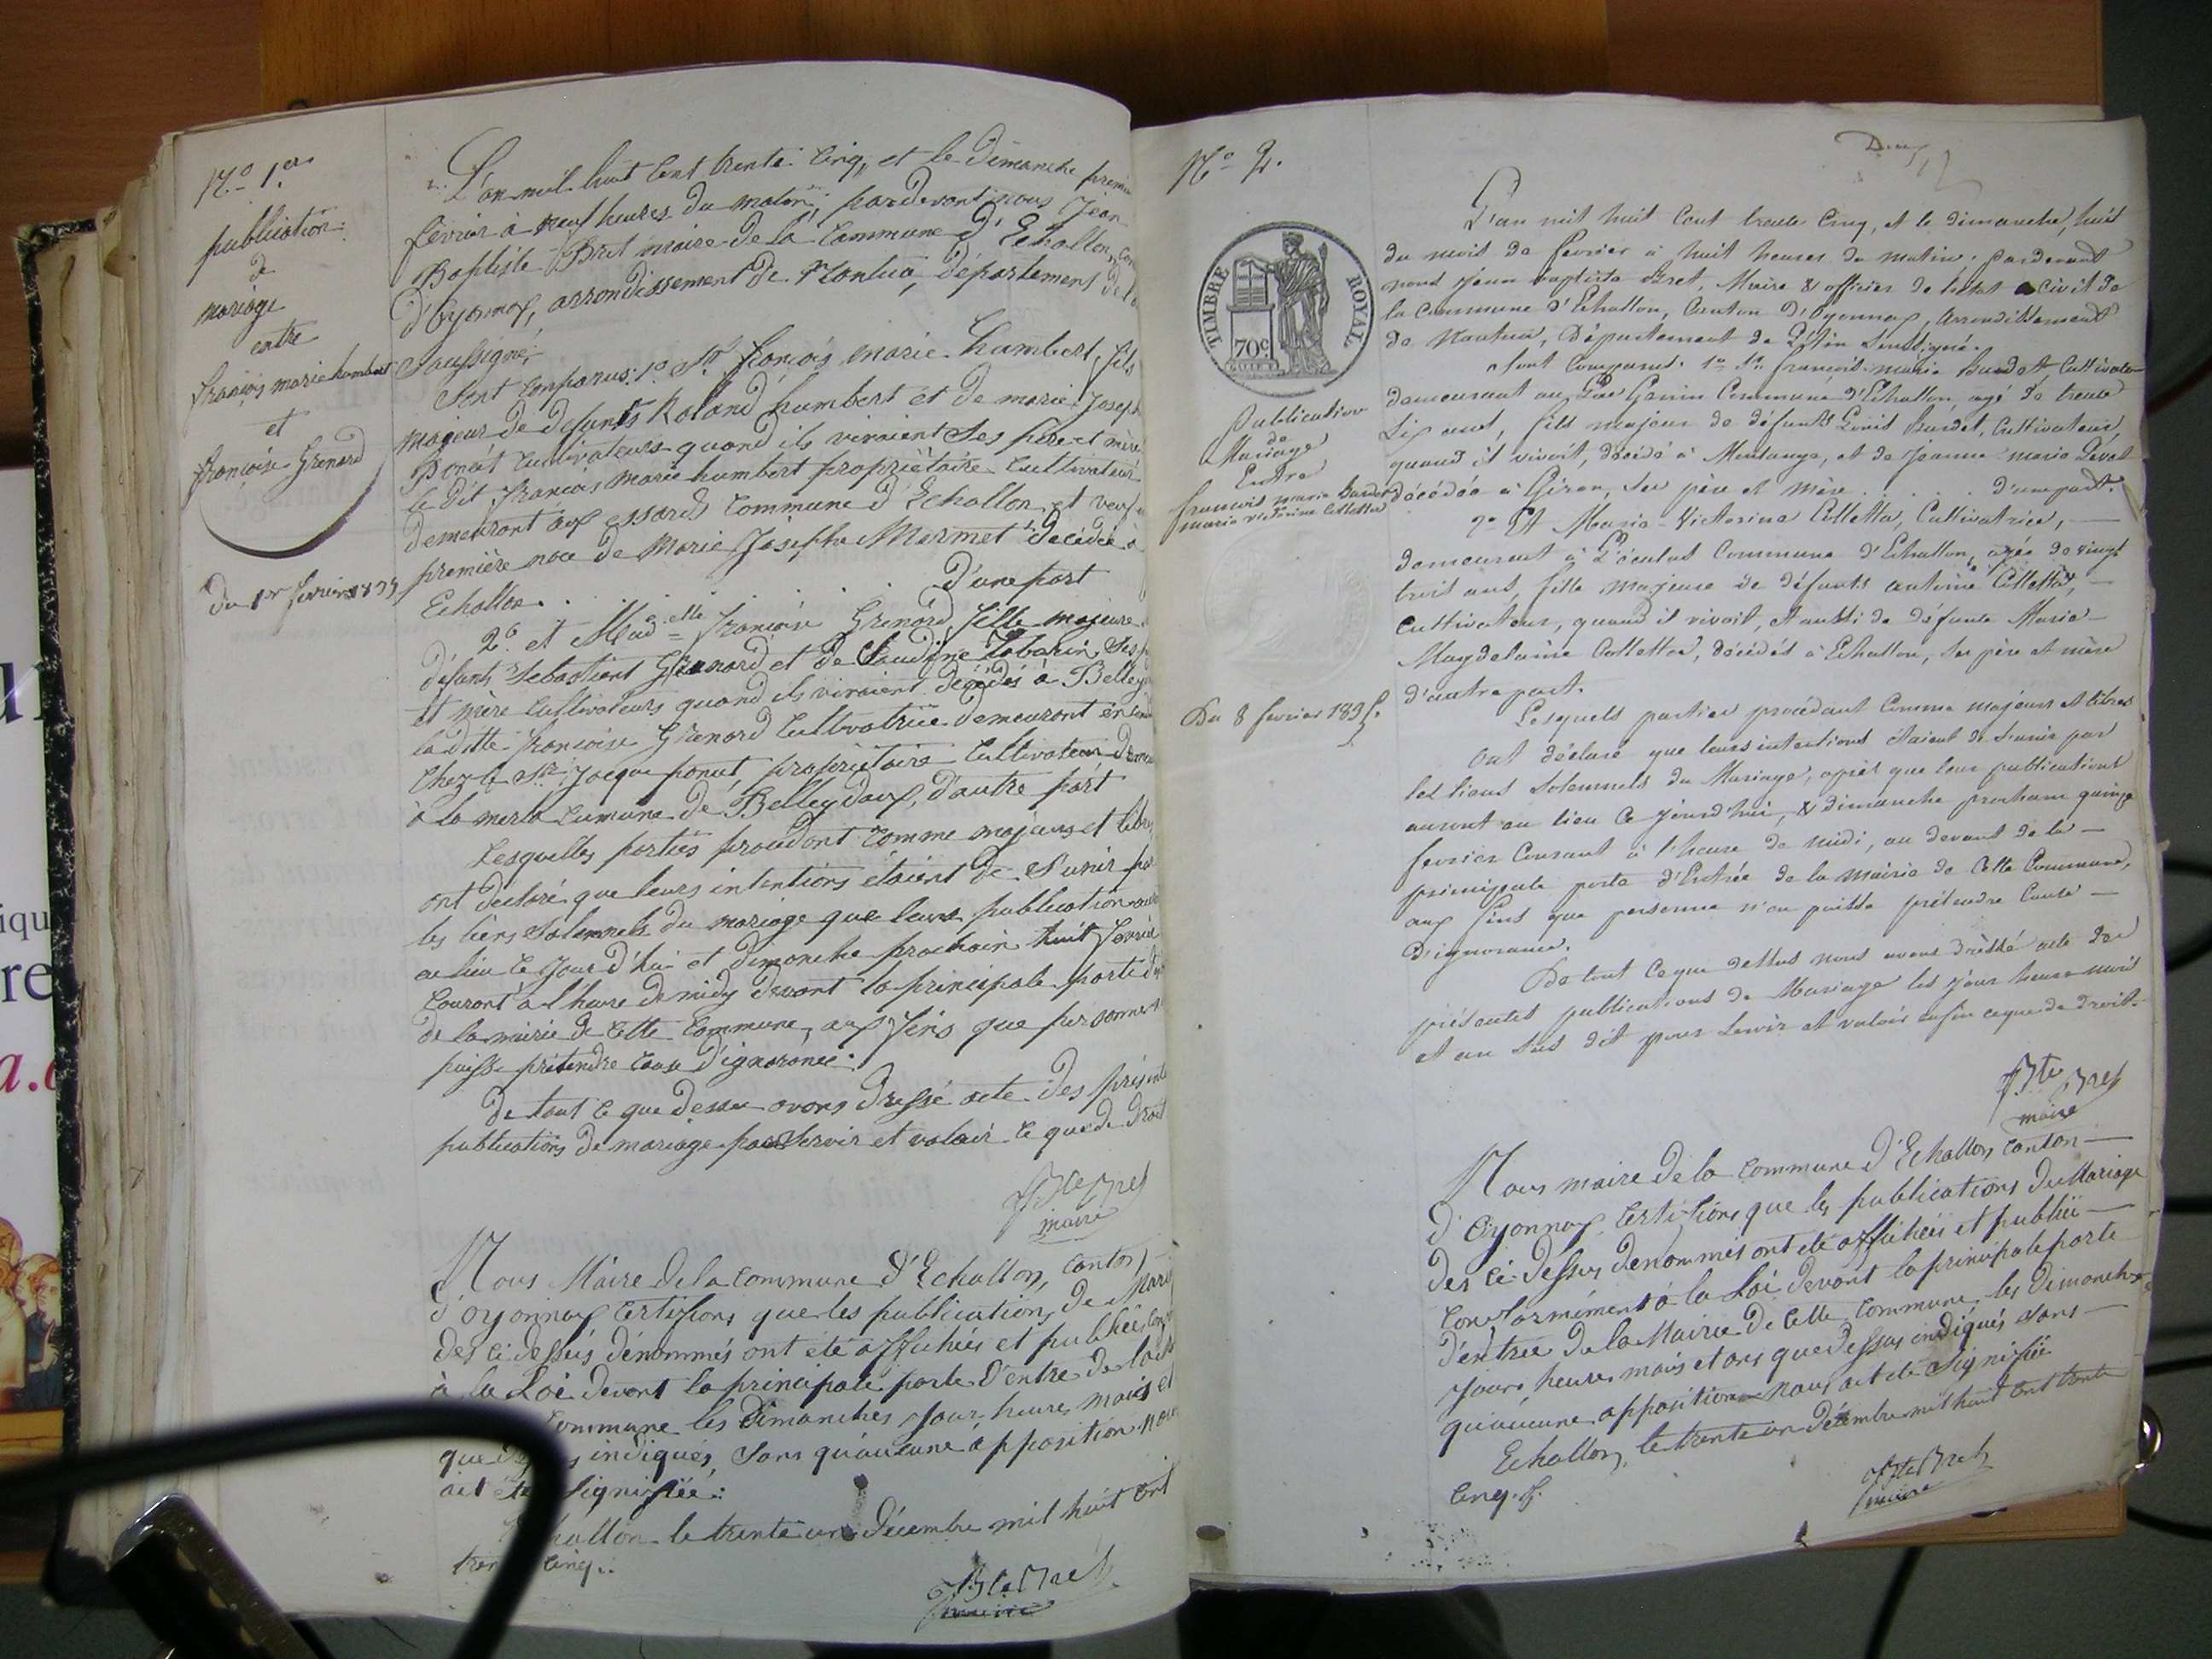 N.o 1.er
publication
de
mariage
entre
françois marie humbert
et
françoise Grenard
Du 1er fevrier 1835
L'an mil huit cent trente cinq, et le dimanche premier
février à neuf heures du matin, pardevant nous Jean
Baptiste Bret maire de la commune d'Echallon, can
d'Oyonnax, arrondissement de Nantua, département de l'a
Soussigné,
Sont comparus: 1o Sr françois marie humbert, fils
majeur de defunts Roland humbert et de marie Joseph
Poncet cultivateurs quand ils vivaient ses père et mère
le dit françois marie humbert propriétaire cultivateur
demeurant aux essards commune d'Echallon, et veuf
première noce de Marie Josephe Mermet décédée à
Echallon. d'une part
2o. et Mademelle françoise Grenard, fille majeure
défunts Sebastient Grenard et de Claudine Tabarin, ses p
et mère cultivateurs quand ils vivaient décédés à Belley
la ditte françoise Grenard cultivatrice demeurant en
chez le Sr. Jacque ponut, propriétaire cultivateur deme
à la merla cumune de Belleydoux, d'autre part
Lesquelles parties procédant comme majeurs et libres
ont déclaré que leurs intentions étaient de s'unir par
les liens solemnels du mariage que leurs publication auro
eu lieu ce jour d'hui et dimanche prochain huit fevrier
courant à l'heure de midy devant la principale porte d'e
de la mairie de cette commune, aux fins que personne n
puisse prétendre cause d'ignorance.
de tout ce que dessu avons dressé acte des présente
publications de mariage pour servir et valoir ce que de droit
JBte Bret
maire
Nous Maire de la commune d'Echallon, canton
d'oyonnax certifions que les publications de Mari
des ci dessus dénommés ont été affichées et publiées con
à la Loi devant la principale porte d'entre de la
commune les dimanches jour, heure, mois et
que indiqués, sans qu'aucune opposition nous
ait été signifiée:
le trente un décembre mil huit cent
cinq.
JBte Bret
maire
N.o 2.
TIMBRE ROYAL
70c
Publication
de
Mariage
Entre
françois marie Bardet
marie victorine Colletta
Du 8 fevrier 1835.
Deux
L'an mil huit cent trente cinq, et le dimanche, huit
du mois de fevrier à huit heures du matin. pardevant
nous Jean baptiste Bret, Maire & officier de l'état civil de
la Commune d'Echallon, Canton d'Oyonnax, Arrondissement
de Nantua, Département de L'Ain Soussigné.
Sont Comparus. 1o Sr. françois-marie Bardet, Cultivateur
demeurant au Commune d'Echallon, agé de trente
Six ans, fils majeur de défunts Louis Bardet, Cultivateur,
quand il vivoit, décédé à Montange, et de Jeanne marie
décédée à Giron, ses père et mère. d'une part.
2o Et Marie-Victorine Colletta, Cultivatrice,
demeurant à L'écutet Commune d'Echallon, agée de vingt
trois ans, fille majeure de défunts antoine Colletta,
cultivateur, quand il vivoit, et aussi de défunte Marie-
Magdelaine Colletta, décédés à Echallon, ses père et mère
d'autre part.
Lesquels parties procédant Comme majeurs et libres
ont déclaré que leurs intentions étaient de s'unir par
les liens solemnels du Mariage, après que leur publications
auront eu lieu ce jourd'hui, & dimanche prochain quinze
fevrier Courant à l'heure de midi, au devant de la
principale porte d'Entrée de la Mairie de Cette Commune,
aux fins que personne n'en puisse prétendre Cause
d'ignorance.
De tout ce que dessus nous avons drèssé acte des
présentes publications de Mariage les jour heure mois
et an sus dit pour servir et valoir enfin ce que de droit.
JBte Bret
maire
Nous maire de la commune d'Echallon, canton
d'Oyonnax certifions que les publications du Mariage
des ci dessus dénommés ont été affichées et publiée
conformément à la Loi devant la principale porte
d'entrée de la Mairie de cette commune, les dimanches
jours heures mois et ans que dessus indiqués sans
qu'aucune opposition nous ait été signifiée
Echallon, le trente un décembre mil huit cent trente
cinq.
JBte Bret
maire